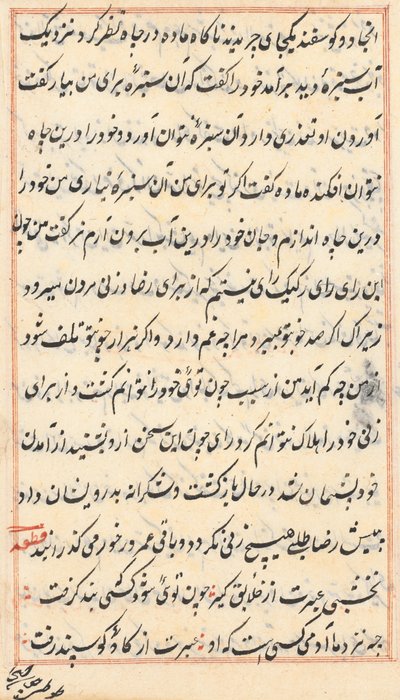 انجا دو کوسفند یکجای چریدند ناکاه ماده در چاه نظر کرد نزدیک
آب سبزهٔ دید بر آمد خود را کفت که آن سبزهٔ برای من بیار کفت
آورون او تعذری دارد و آن سبزه نتوان آورد و خود را درین چاه
نتوان افکند ماده کفت اکر تو برای من آن سبزه نیاری من خود را
درین چاه اندازم و جان خود را درین آب برون آرم نر کفت من چون
این رای رای رکیک رای نیستم که از برای رضا زنی مردن میرود
زیراک اکر صد چو تو بمیرد مرا چه غم دارد و اکر هزار چو تو تلف شود
از من چه کم آید من از سبب چون توی خود را نتوانم کشت و از برای
زنی خود را هلاک نتوانم کرد رای چون این سخن از و بشنید از آمدن
خود پشیمان شد در حال بازکشت و شکرانه بدرویشان داد
پیش رضا طلبی هیچ زنی نکرد و باقی عمر در خورمی کذرانید قطعه
نخشبی عبرت از خلایق کیر چون توی شود کسی بند کرفت
چه نرد ما آدمی کسی است که او عبرت از کاو کوسپند رفت